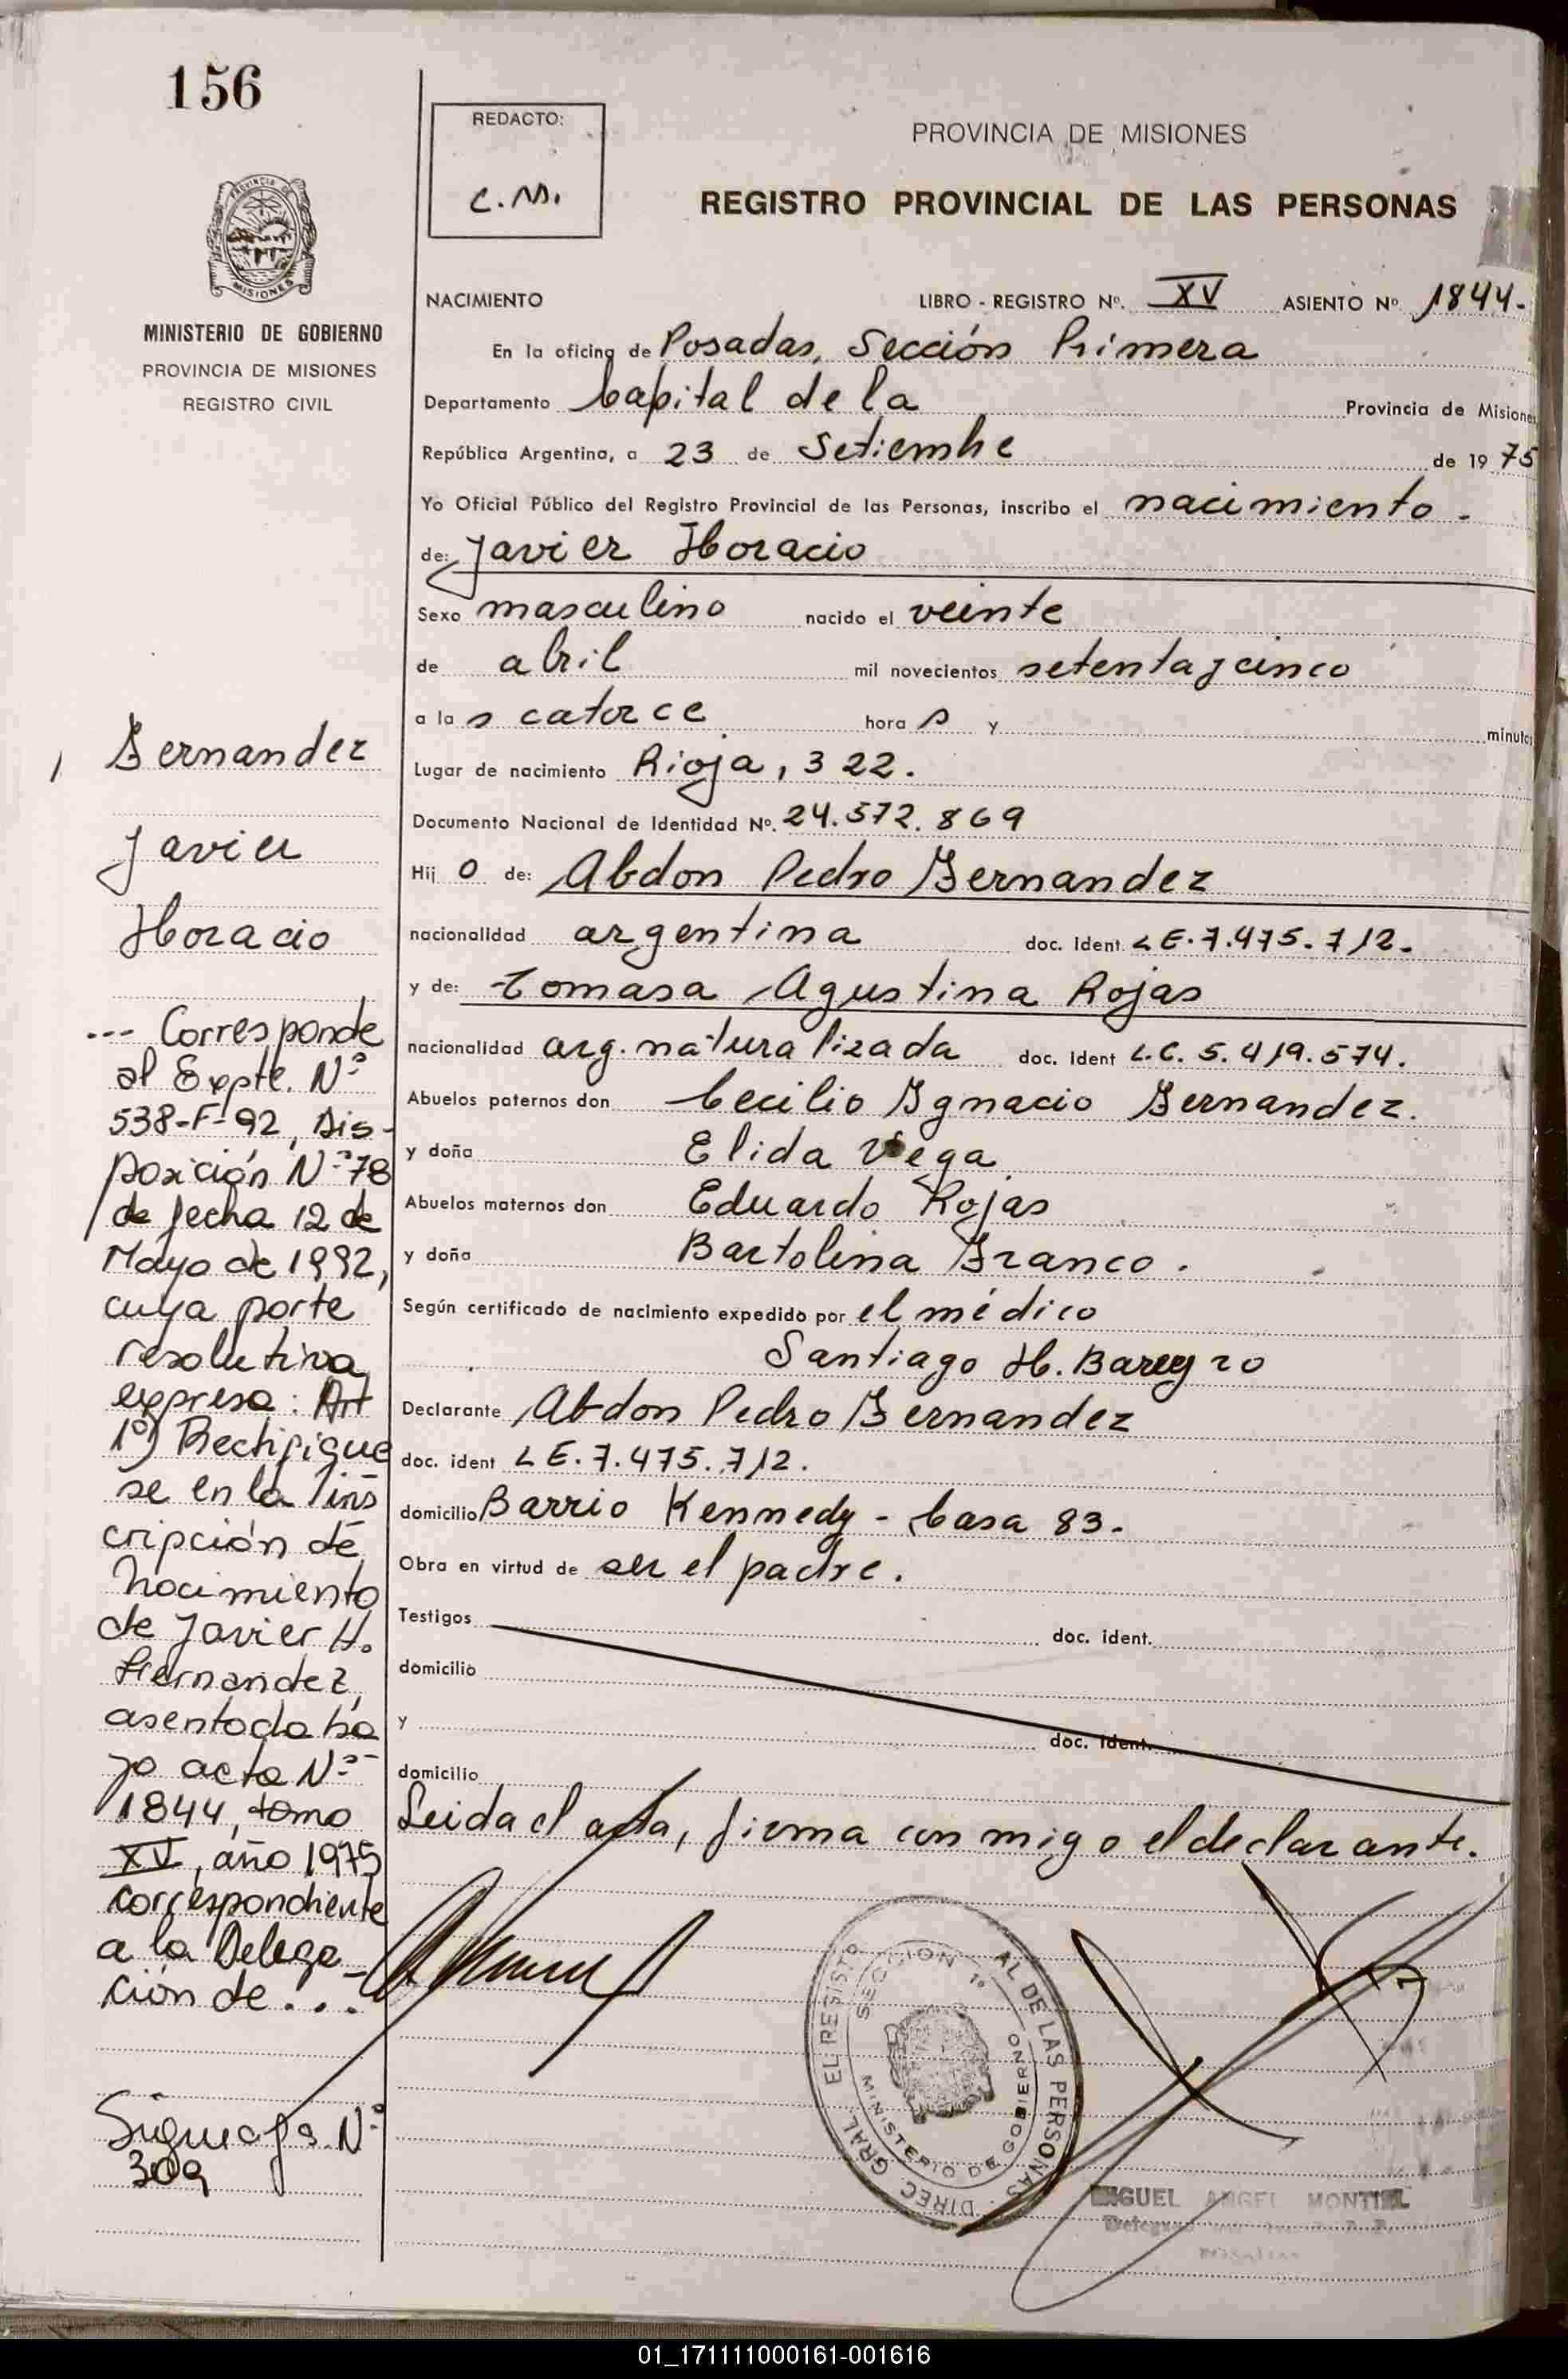 156
REDACTO:
C.M.
PROVINCIA DE MISIONES
REGISTRO PROVINCIAL DE LAS PERSONAS
MISIONES
MINISTERIO DE GOBIERNO
PROVINCIA DE MISIONES
REGISTRO CIVIL
NACIMIENTO LIBRO - REGISTRO Nº. XV ASIENTO Nº 1844.-
En la oficina de Posadas, Sección Primera
Departamento Capital de la Provincia de Misiones
República Argentina, a 23 de Setiembre de 1975
Yo Oficial Público del Registro Provincial de las Personas, inscribo el nacimiento.
de: Javier Horacio
Sexo masculino nacido el veinte
de abril mil novecientos setenta y cinco
a las catorce horas y minutos
Lugar de nacimiento Rioja, 322.
Documento Nacional de Identidad Nº. 24.572.869
Hijo de: Abdon Pedro Fernandez
nacionalidad argentina doc. Ident. LE.7.475.712.
y de: Tomasa Agustina Rojas
nacionalidad arg. naturalizada doc. ident L.C. 5.419.574.
Abuelos paternos don Cecilio Ignacio Fernandez.
y doña Elida Vega
Abuelos maternos don Eduardo Rojas
y doña Bartolina Franco.
Según certificado de nacimiento expedido por el médico
Santiago H. Bareyro
Declarante Abdon Pedro Fernandez
doc. ident LE.7.475.712.
domicilio Barrio Kennedy - Casa 83.
Obra en virtud de ser el padre.
Testigos doc. ident.
domicilio
y doc. ident.
domicilio
Leida el acta, firma conmigo el declarante.
Fernandez
Javier
Horacio
--- Corresponde
al Expte. Nº
538-F-92, Dis-
posición Nº 78
de fecha 12 de
Mayo de 1992,
cuya parte
resolutiva
expresa: Art
1º) Rectifique
se en la ins
cripción de
nacimiento
de Javier H.
Fernandez,
asentada ba
jo acta Nº
1844, tomo
XV, año 1975
correspondiente
a la Delega-
ción de...
Sigue a fs. Nº
309
SECCION 1º
AL DE LAS PERSONAS
DIREC. GRAL.
EL REGISTO
MINISTERIO DE GOBIERNO
MIGUEL ANGEL MONTIEL
01_171111000161-001616